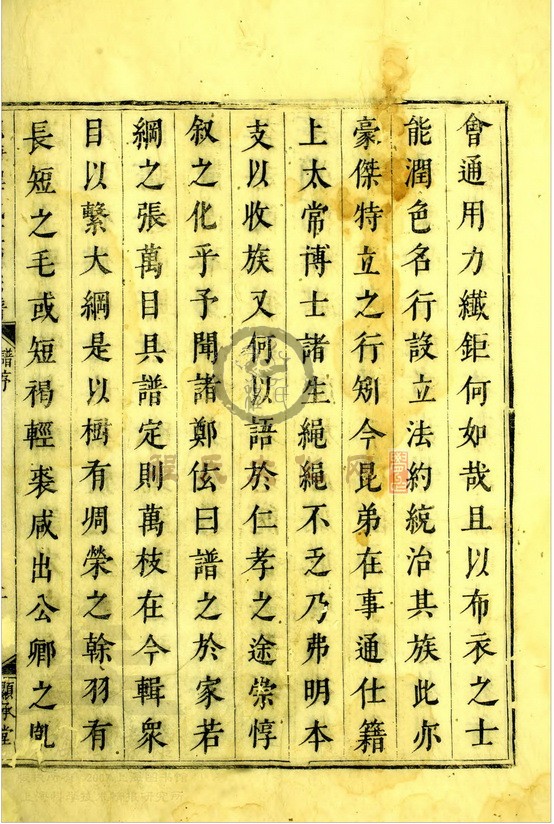 會通用力纖鉅何如哉且以布衣之士
能潤色名行設立法約統治其族此亦
豪傑特立之行矧今昆弟在事通仕籍
上太常博士諸生繩繩不乏乃弗明本
支以收族又何以語於仁孝之途崇惇
叙之化乎予聞諸鄭伭曰譜之於家若
綱之張萬目具譜定則萬枝在今輯衆
目以繫大綱是以樹有凋榮之榦羽有
長短之毛或短褐輕裘咸出公卿之胤
譜序
顯承堂